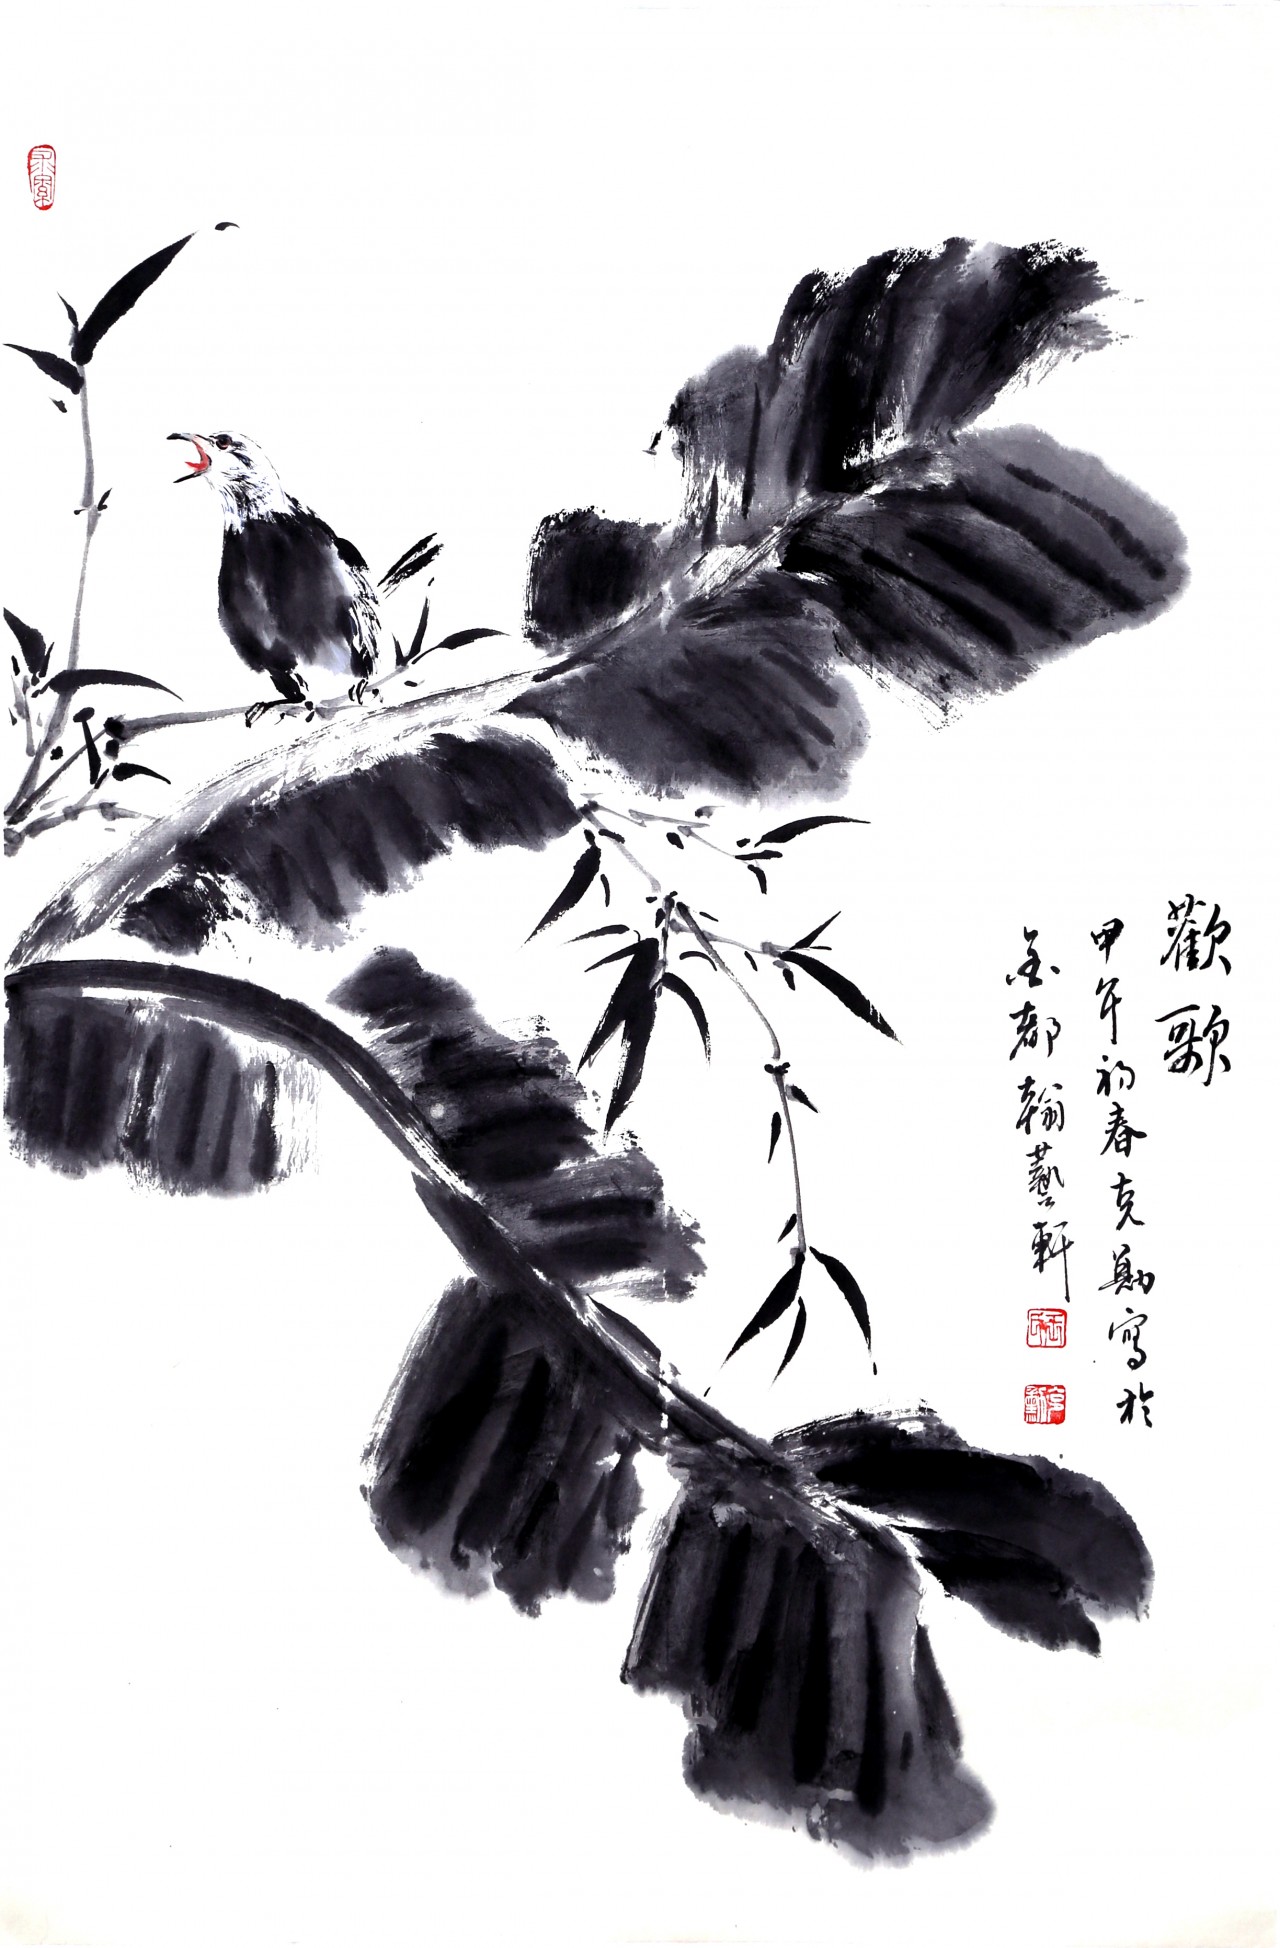 歡歌
甲午初春克勛寫於
金都翰藝軒